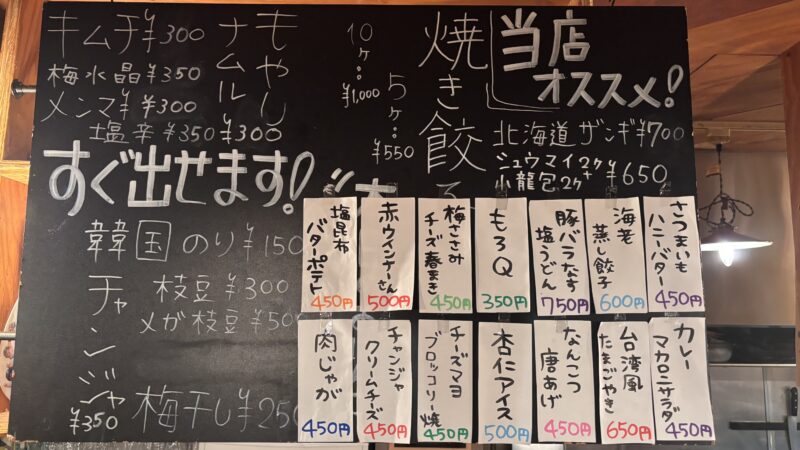 当店
オススメ!
北海道 ザンギ¥700
シュウマイ2ケ+
小龍包2ケ ¥650
焼き餃子
5ケ…
¥550
10ケ…
¥1,000
もやし
ナムル
¥300
キムチ¥300
梅水晶¥350
メンマ¥300
塩辛¥350
すぐ出せます!
韓国のり¥150
枝豆¥300
メガ枝豆¥500
チャンジャ
¥350
梅干し¥250
さつまいも
ハニーバター
450円
海老
蒸し餃子
600円
豚バラなす
塩うどん
750円
もろQ
350円
梅ささみ
チーズ春まき
450円
赤ウインナーさん
500円
塩昆布
バターポテト
450円
カレー
マカロニサラダ
450円
台湾風
たまごやき
650円
なんこつ
唐あげ
450円
杏仁アイス
500円
チーズマヨ
ブロッコリー焼
450円
チャンジャ
クリームチーズ
450円
肉じゃが
450円